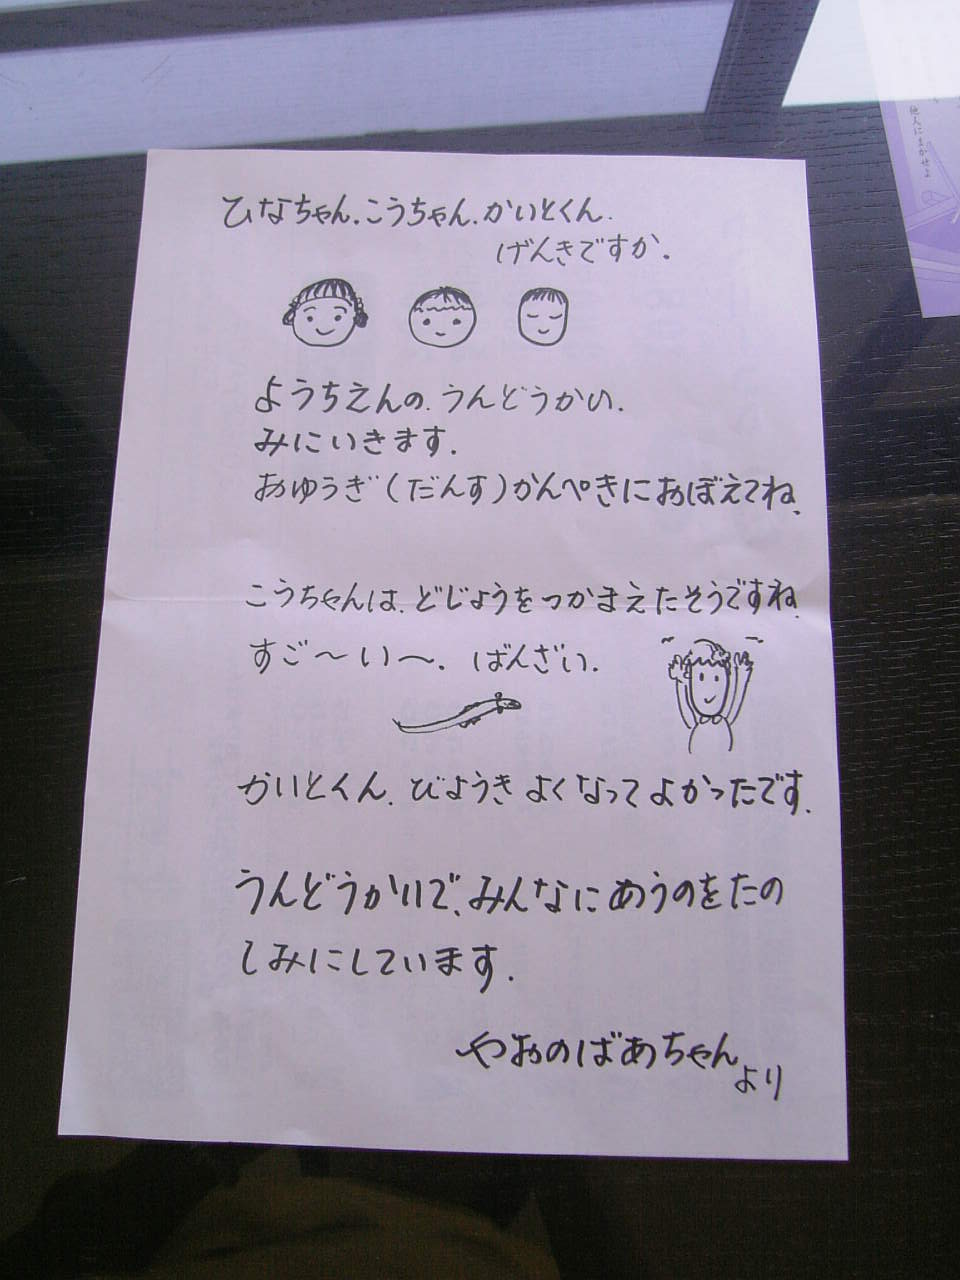 他人にまかせよ
ひなちゃん.こうちゃん.かいとくん.
げんきですか.
ようちえんの.うんどうかい.
みにいきます.
おゆうぎ(だんす)かんぺきにおぼえてね、
こうちゃんは.どじょうをつかまえたそうですね、
すご〜い〜.ばんざい.
かいとくん.びょうきよくなってよかったです.
うんどうかいで、みんなにあうのをたの
しみにしています.
やおのばあちゃん
より